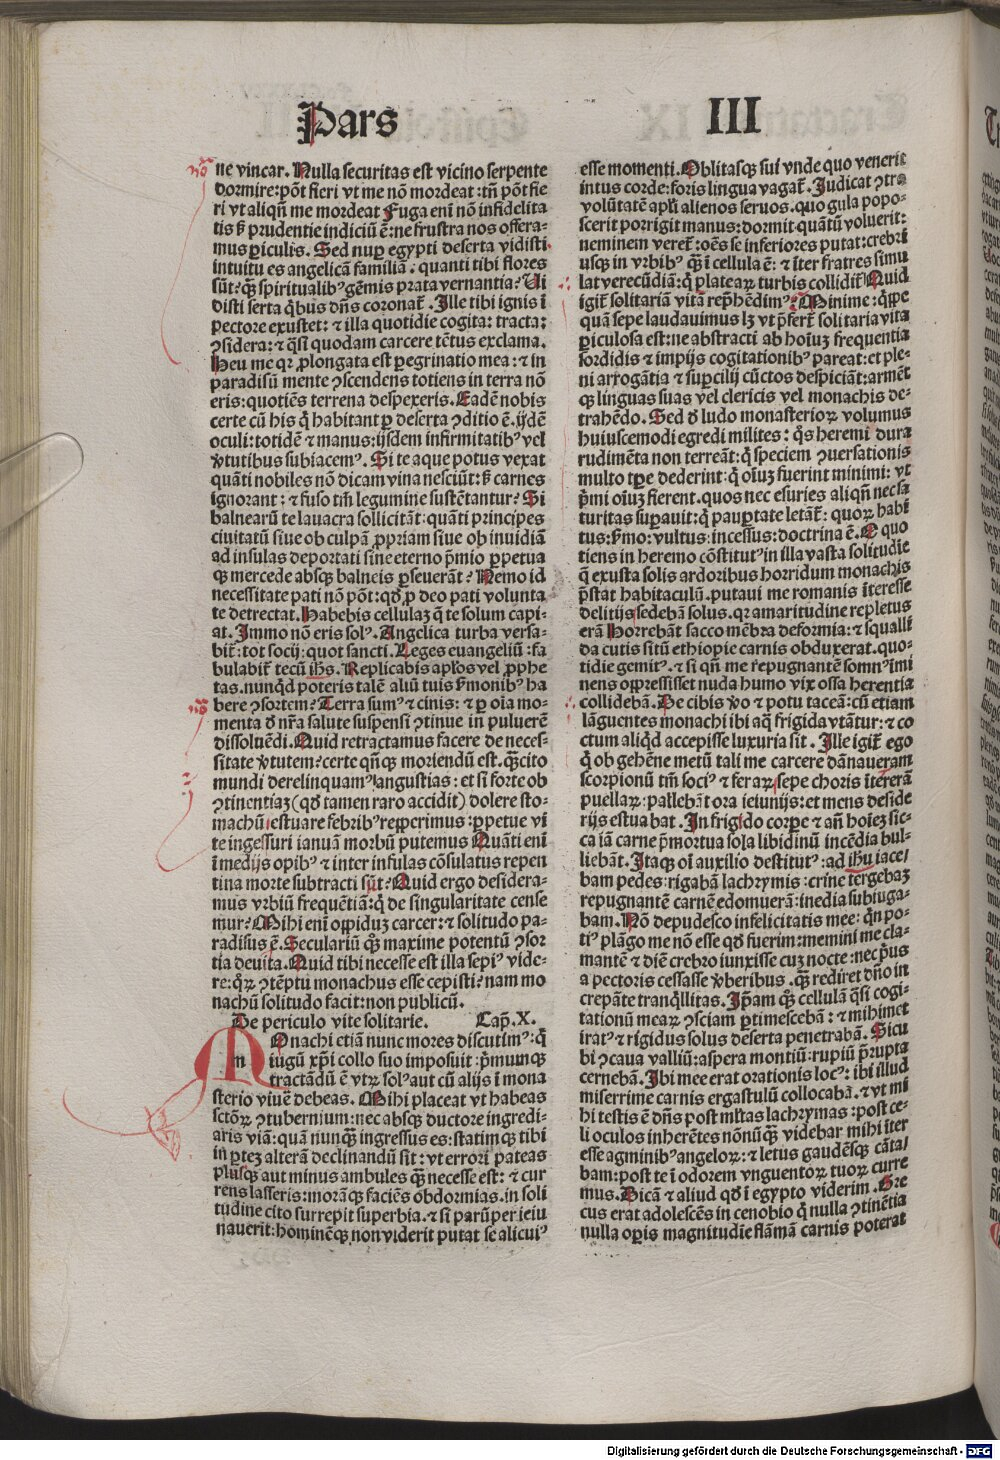 Pars III
ne vincar. Nulla securitas est vicino serpente
dormire: põt fieri vt me nõ mordeat: tñ põt fie
ri vt aliqñ me mordeat Fuga eni nõ infidelita
tis s̄ prudentie indiciũ ē: ne frustra nos offera-
mus ꝑiculis. Sed nuꝑ egypti deserta vidisti.
intuitu es angelicã familiã: quanti tibi flores
sũt: q̃ꝫ spiritualibꝰ gẽmis prata vernantia? Ui
disti serta q̃bus dñs coronat̄. Ille tibi ignis ī
pectore exustet: ⁊ illa quotidie cogita: tracta;
ꝯsidera: ⁊ q̃si quodam carcere tẽtus exclama.
Heu me qꝛ ꝓlongata est ꝑegrinatio mea: ⁊ in
paradisũ mente ꝯscendens totiens in terra nõ
eris: quotiẽs terrena despexeris. Eadẽ nobis
certe cũ his q̃ habitant ꝑ deserta ꝯditio ē. ijdẽ
oculi: totidẽ ⁊ manus: ijsdem infirmitatibꝰ vel
v̄tutibus subiacemꝰ. Si te aque potus vexat
quãti nobiles nõ dicam vina nesciũt: s̄ carnes
ignorant: ⁊ fuso tm̄ legumine sustẽtantur? Si
balnearũ te lauacra sollicitãt: quãti principes
ciuitatũ siue ob culpã ꝓpriam siue ob inuidiã
ad insulas deportati sine eterno p̄mio ꝑpetua
qꝫ mercede absqꝫ balneis ꝑseuerãt? Nemo id
necessitate pati nõ põt: qđ ꝓ deo pati volunta
te detrectat. Habebis cellulaꝫ q̃ te solum capi-
at. Immo nõ eris solꝰ. Angelica turba versa-
bit̄: tot socij: quot sancti. Leges euangeliũ: fa
bulabit̄ tecũ ih̄s. Replicabis apl̄os vel ꝓphe
tas. nunqd poteris talẽ aliũ tuis s̄monibꝰ ha
bere ꝯsortem? Terra sumꝰ ⁊ cinis: ⁊ ꝑ oīa mo-
menta đ nr̄a salute suspensi ꝯtinue in puluerẽ
dissoluẽdi. Quid retractamus facere de neces-
sitate v̄tutem? certe qñqꝫ moriendũ est. q̃ꝫcito
mundi derelinquamꝰ angustias: et si forte ob
ꝯtinentiaꝫ (qđ tamen raro accidit) dolere sto-
machũ estuare febribꝰ reꝑerimus: ꝑpetue vi
te ingessuri ianuã morbũ putemus Quãti eni
ī medijs opibꝰ ⁊ inter infulas cõsulatus repen
tina morte subtracti sũt? Quid ergo desidera-
mus vrbiũ frequẽtiã: q̃ de singularitate cense
mur? Mihi eni oppiduꝫ carcer: ⁊ solitudo pa-
radisus ē. Seculariũ qꝫ maxime potentũ ꝯsor
tia deuita. Quid tibi necesse est illa sepiꝰ vide-
re: q̃ꝝ ꝯtẽptu monachus esse cepisti? nam mo
nachũ solitudo facit: non publicũ.
De periculo vite solitarie. Cap̄. X.
MOnachi etiã nunc mores discutimꝰ: q̃
iugũ xp̄i collo suo imposuit: p̄mumqꝫ
tractãdũ ē vtꝝ solꝰ aut cũ alijs ī mona
sterio viuẽ debeas. Mihi placeat vt habeas
sctõꝝ ꝯtubernium: nec absqꝫ ductore ingredi-
aris viã: quã nunq̃ꝫ ingressus es: statimqꝫ tibi
in ꝑteꝫ alterã declinandũ sit: vt errori pateas
plusqꝫ aut minus ambules q̃ꝫ necesse est: ⁊ cur
rens lasseris: morãqꝫ faciẽs obdormias. in soli
tudine cito surrepit superbia. ⁊ si parũper ieiu
nauerit: hominẽqꝫ non viderit putat se alicuiꝰ
esse momenti. Oblitasqꝫ sui vnde quo venerit
intus corde: foris lingua vagat̄. Judicat ꝯtra
volũtatẽ apl̄i alienos seruos. quo gula popo-
scerit porrigit manus: dormit quãtũ voluerit:
neminem veret̄: oẽs se inferiores putat: crebri
usqꝫ in vrbibꝰ q̃ꝫ ī cellula ē: ⁊ īter fratres simu
lat verecũdiã: q̃ plateaꝝ turbis collidit̄ Quid
igit̄ solitariã vitã rep̄hẽdimꝰ? Minime: q̃ppe
quã sepe laudauimus lꝫ vt p̄fert̄ solitaria vita
ꝑiculosa est: ne abstracti ab hoīuꝫ frequentia
sordidis ⁊ impijs cogitationibꝰ pareat: et ple-
ni arrogãtia ⁊ suꝑcilij cũctos despiciãt: armẽt
qꝫ linguas suas vel clericis vel monachis de-
trahẽdo. Sed đ ludo monasterioꝝ volumus
huiuscemodi egredi milites: q̃s heremi dura
rudimẽta non terreãt: q̃ speciem ꝯuersationis
multo tꝑe dederint: q̃ oīuꝫ fuerint minimi: vt
p̄mi oīuꝫ fierent. quos nec esuries aliqñ nec sa
turitas suꝑauit: q̃ pauꝑtate letãt̄: quoꝝ habi
tus: s̄mo: vultus: incessus: doctrina ē. O quo
tiens in heremo cõstitutꝰ in illa vasta solitudīe
q̃ exusta solis ardoribus horridum monachis
p̄stat habitaculũ. putaui me romanis īteresse
delitijs sedebã solus. qꝛ amaritudine repletus
erã Horrebãt sacco mẽbra deformia: ⁊ squalli
da cutis sitũ ethiopie carnis obduxerat. quo-
tidie gemitꝰ. ⁊ si qñ me repugnantẽ somnꝰ īmi
nens oppressisset nuda humo vix ossa herentia
collidebã. De cibis v̄o ⁊ potu taceã: cũ etiam
lãguentes monachi ibi aq̃ frigida vtãtur: ⁊ co
ctum aliqd accepisse luxuria sit. Ille igit̄ ego
q̃ ob gehẽne metũ tali me carcere dãnaueram
scorpionũ tm̄ sociꝰ ⁊ feraꝝ sepe choris ītererã
puellaꝝ: pallebãt ora ieiunijs: et mens deside
rijs estuabat. In frigido corꝑe ⁊ añ hoīeꝫ sic-
ca iã carne p̄mortua sola libidinũ incẽdia bul-
liebãt. Itaqꝫ oī auxilio destitutꝰ: ad ih̄u iace/
bam pedes: rigabã lachrymis: crine tergebaꝫ
repugnantẽ carnẽ edomuerã: inedia subiuga-
bam. Nõ depudesco infelicitatis mee: q̃n po-
tiꝰ plãgo me nõ esse qđ fuerim: memini me cla-
mantẽ ⁊ diẽ crebro iunxisse cuꝫ nocte: nec p̄us
a pectoris cessasse v̄beribus. q̃ꝫ rediret dño in
crepãte tranq̃llitas. Ip̄am qꝫ cellulã q̃si cogi-
tationũ meaꝝ ꝯsciam ꝑtimescebã: ⁊ mihimet
iratꝰ ⁊ rigidus solus deserta penetrabã. Sicu
bi ꝯcaua valliũ: aspera montiũ: rupiũ p̄rupta
cernebã. Ibi mee erat orationis locꝰ: ibi illud
miserrime carnis ergastulũ collocabã. ⁊ vt mi
hi testis ē dñs post ml̄tas lachrymas: post ce-
li oculos inherẽtes nõnũq̃ꝫ videbar mihi īter
esse agminibꝰ angeloꝝ: ⁊ letus gaudẽsqꝫ cãta/
bam: post te ī odorem vnguentoꝝ tuoꝝ curre
mus. Dicã ⁊ aliud qđ ī egypto viderim. Gre
cus erat adolescẽs in cenobio q̃ nulla ꝯtinẽtia
nulla oꝑis magnitudīe flãmã carnis poterat
Digitalisierung gefördert durch die Deutsche Forschungsgemeinschaft - DFG